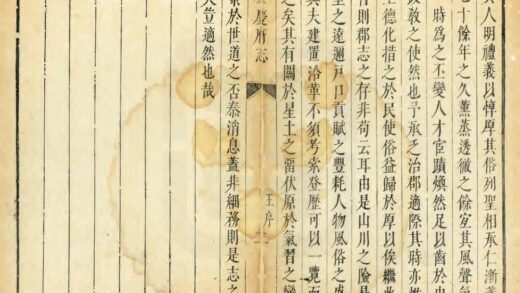 人明禮義以惇厚其俗列聖相承仁漸義
七十餘年之久薰蒸透徹之餘宜其風聲氣
時爲之丕變人才宦蹟煥然足以齒於中
以敎之使然也予承乏治郡適際其時亦惟
上德化措之於民使俗益歸於厚以俟繼此
有則郡志之存非苟云耳由是山川之險易
里之遠邇戸口貢賦之豐耗人物風俗之盛
與夫建置沿革不須考索登歷可以一覽而
之矣其有關於星土之畱伏原於氣習之變
慶府志
王序
二
系於世道之否泰消息蓋非細務則是志之
豈適然也哉